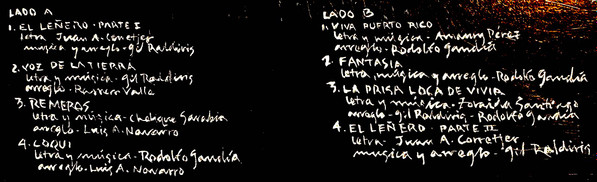 LADO A
1. EL LEÑERO - PARTE I
letra Juan A. Corretjer
musica y arreglo - Gil Raldiris
2. VOZ DE LA TIERRA
letra y música - Gil Raldiris
arreglo - Ramon Valle
3. REMEROS
letra y música - Cheheque Sarabia
arreglo - Luis A. Navarro
4. COQUI
letra y música - Rodolfo Gandía
arreglo - Luis A. Navarro
LADO B
1. VIVA PUERTO RICO
letra y música - Amaury Perez
arreglo - Rodolfo Gandía
2. FANTASIA
letra, música y arreglo - Rodolfo Gandía
3. LA PRISA LOCA DE VIVIA
letra y música - Zoraida Santiago
arreglo - Gil Raldiris - Rodolfo Gandía
4. EL LEÑERO - PARTE II
letra - Juan A. Corretjer
musica y arreglo - Gil Raldiris